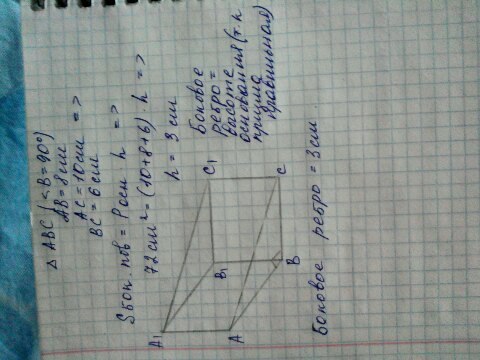 Δ ABC (<B=90°)
AB = 8 см
AC = 10 см =>
BC = 6 см
Sбок. пов = Pосн h =>
72 см² = (10+8+6) h =>
h = 3 см
Боковое
ребро =
высоте
основания (т.к
призма
правильная)
A₁
B₁
C₁
A
B
C
Боковое ребро = 3 см.